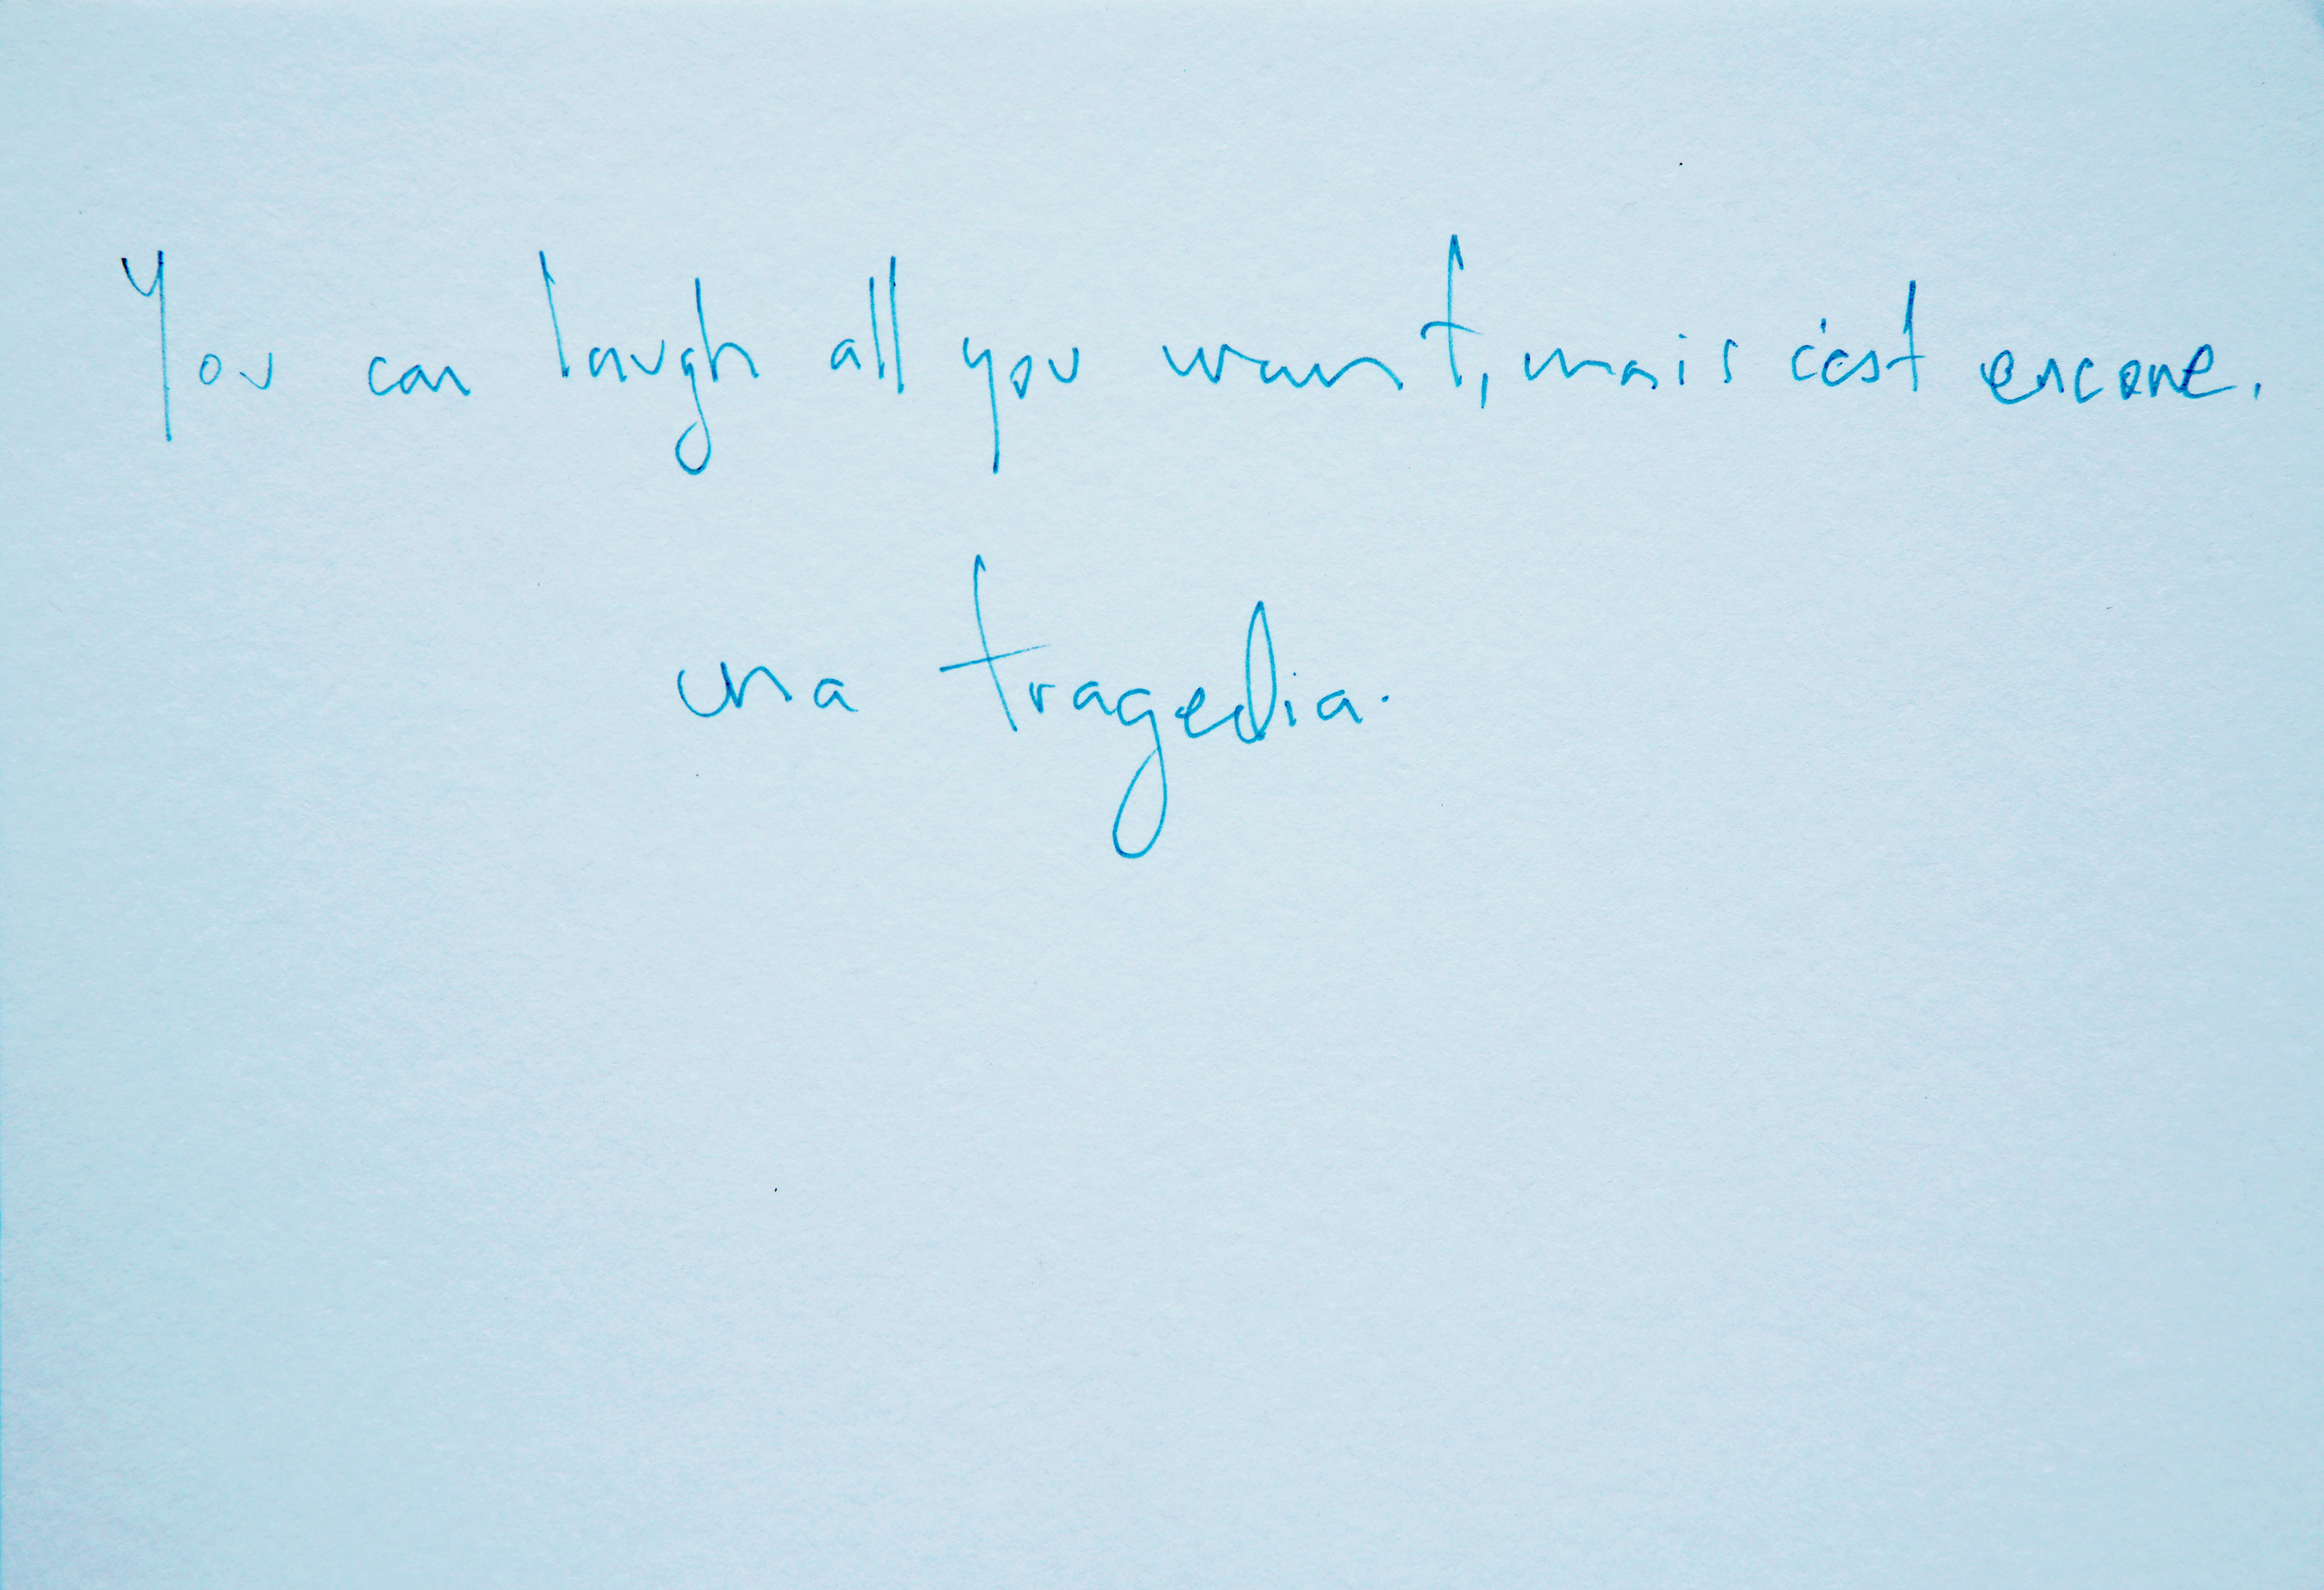 You can laugh all you want, mais c'est encore.
una tragedia.